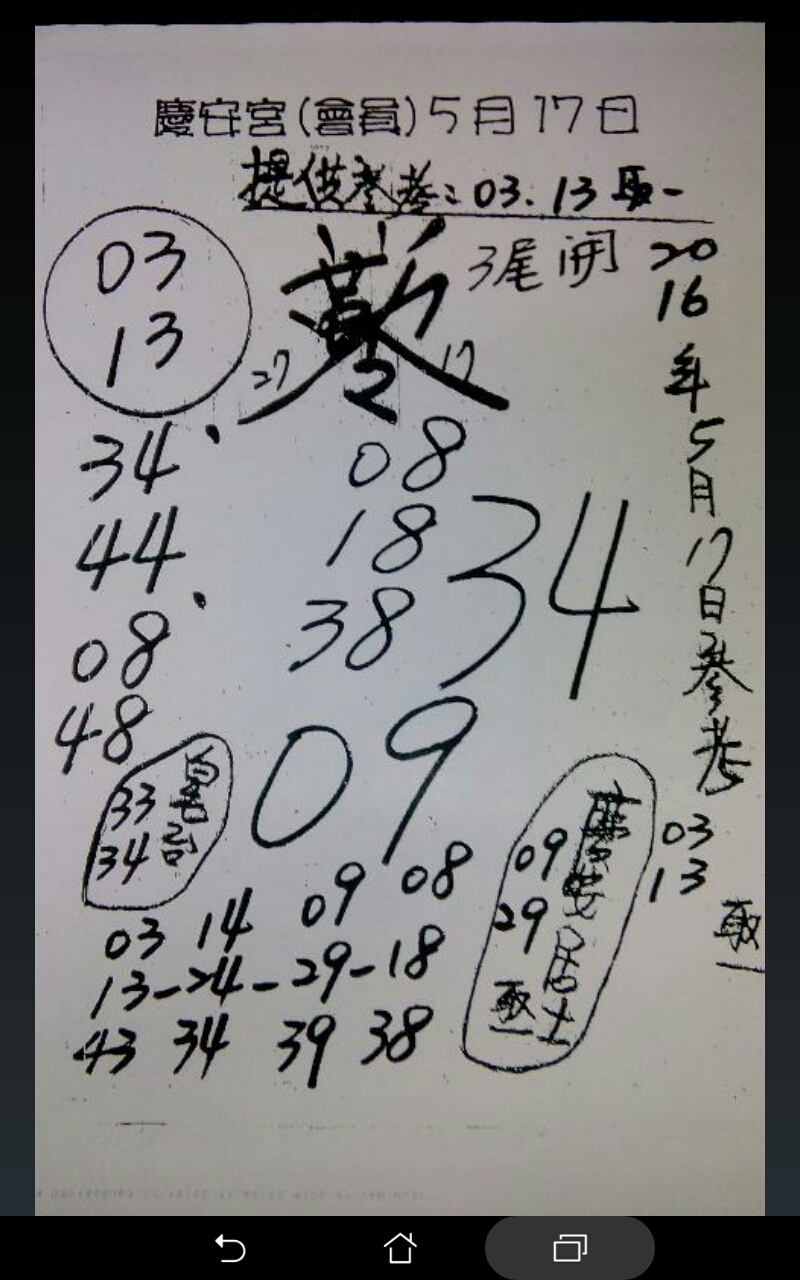 慶安宮(會員)5月17日
提供參考:03.13取一
03
13
3尾開
27
2
17
34
44
08
48
08
18
38
34
09
33
34
03 14 09 08
13-24-29-18
43 34 39 38
09
29
取一
慶安居士
2016年5月17日參考
03
13
取一